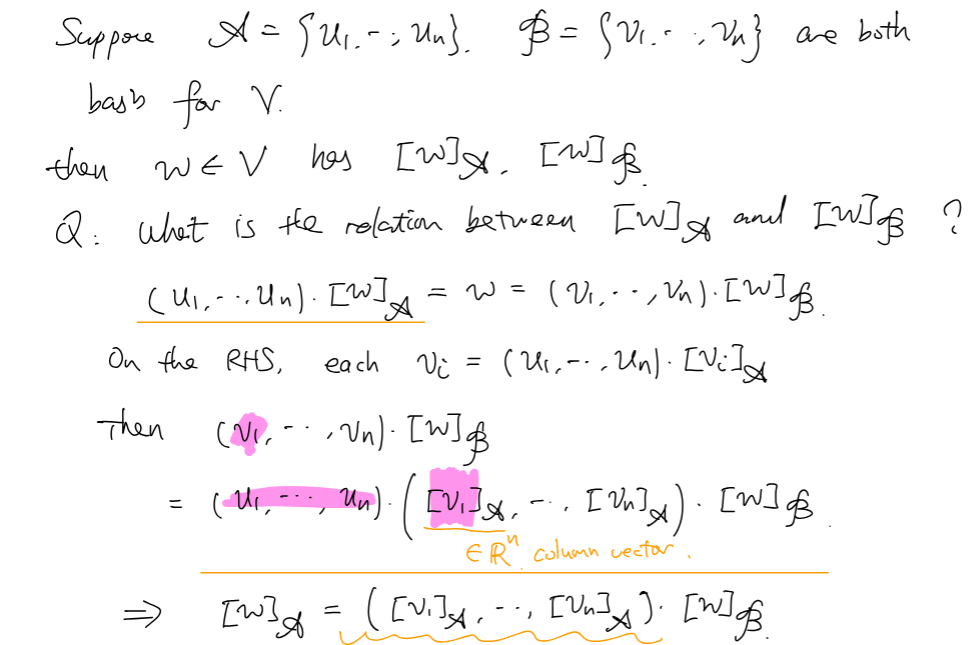 Suppose 𝒜 = {u₁, ‥, uₙ}. ℬ = {v₁, ‥, vₙ} are both
basis for V.
then w ∈ V has [w]𝒜, [w]ℬ.
Q: What is the relation between [w]𝒜 and [w]ℬ ?
(u₁, ‥, uₙ)·[w]𝒜 = w = (v₁, ‥, vₙ)·[w]ℬ.
On the RHS, each vᵢ = (u₁, ‥, uₙ)·[vᵢ]𝒜
Then (v₁, ‥, vₙ)·[w]ℬ
= (u₁, ‥, uₙ)·([v₁]𝒜, ‥, [vₙ]𝒜)·[w]ℬ.
∈ ℝⁿ column vector.
⇒ [w]𝒜 = ([v₁]𝒜, ‥, [vₙ]𝒜)·[w]ℬ.